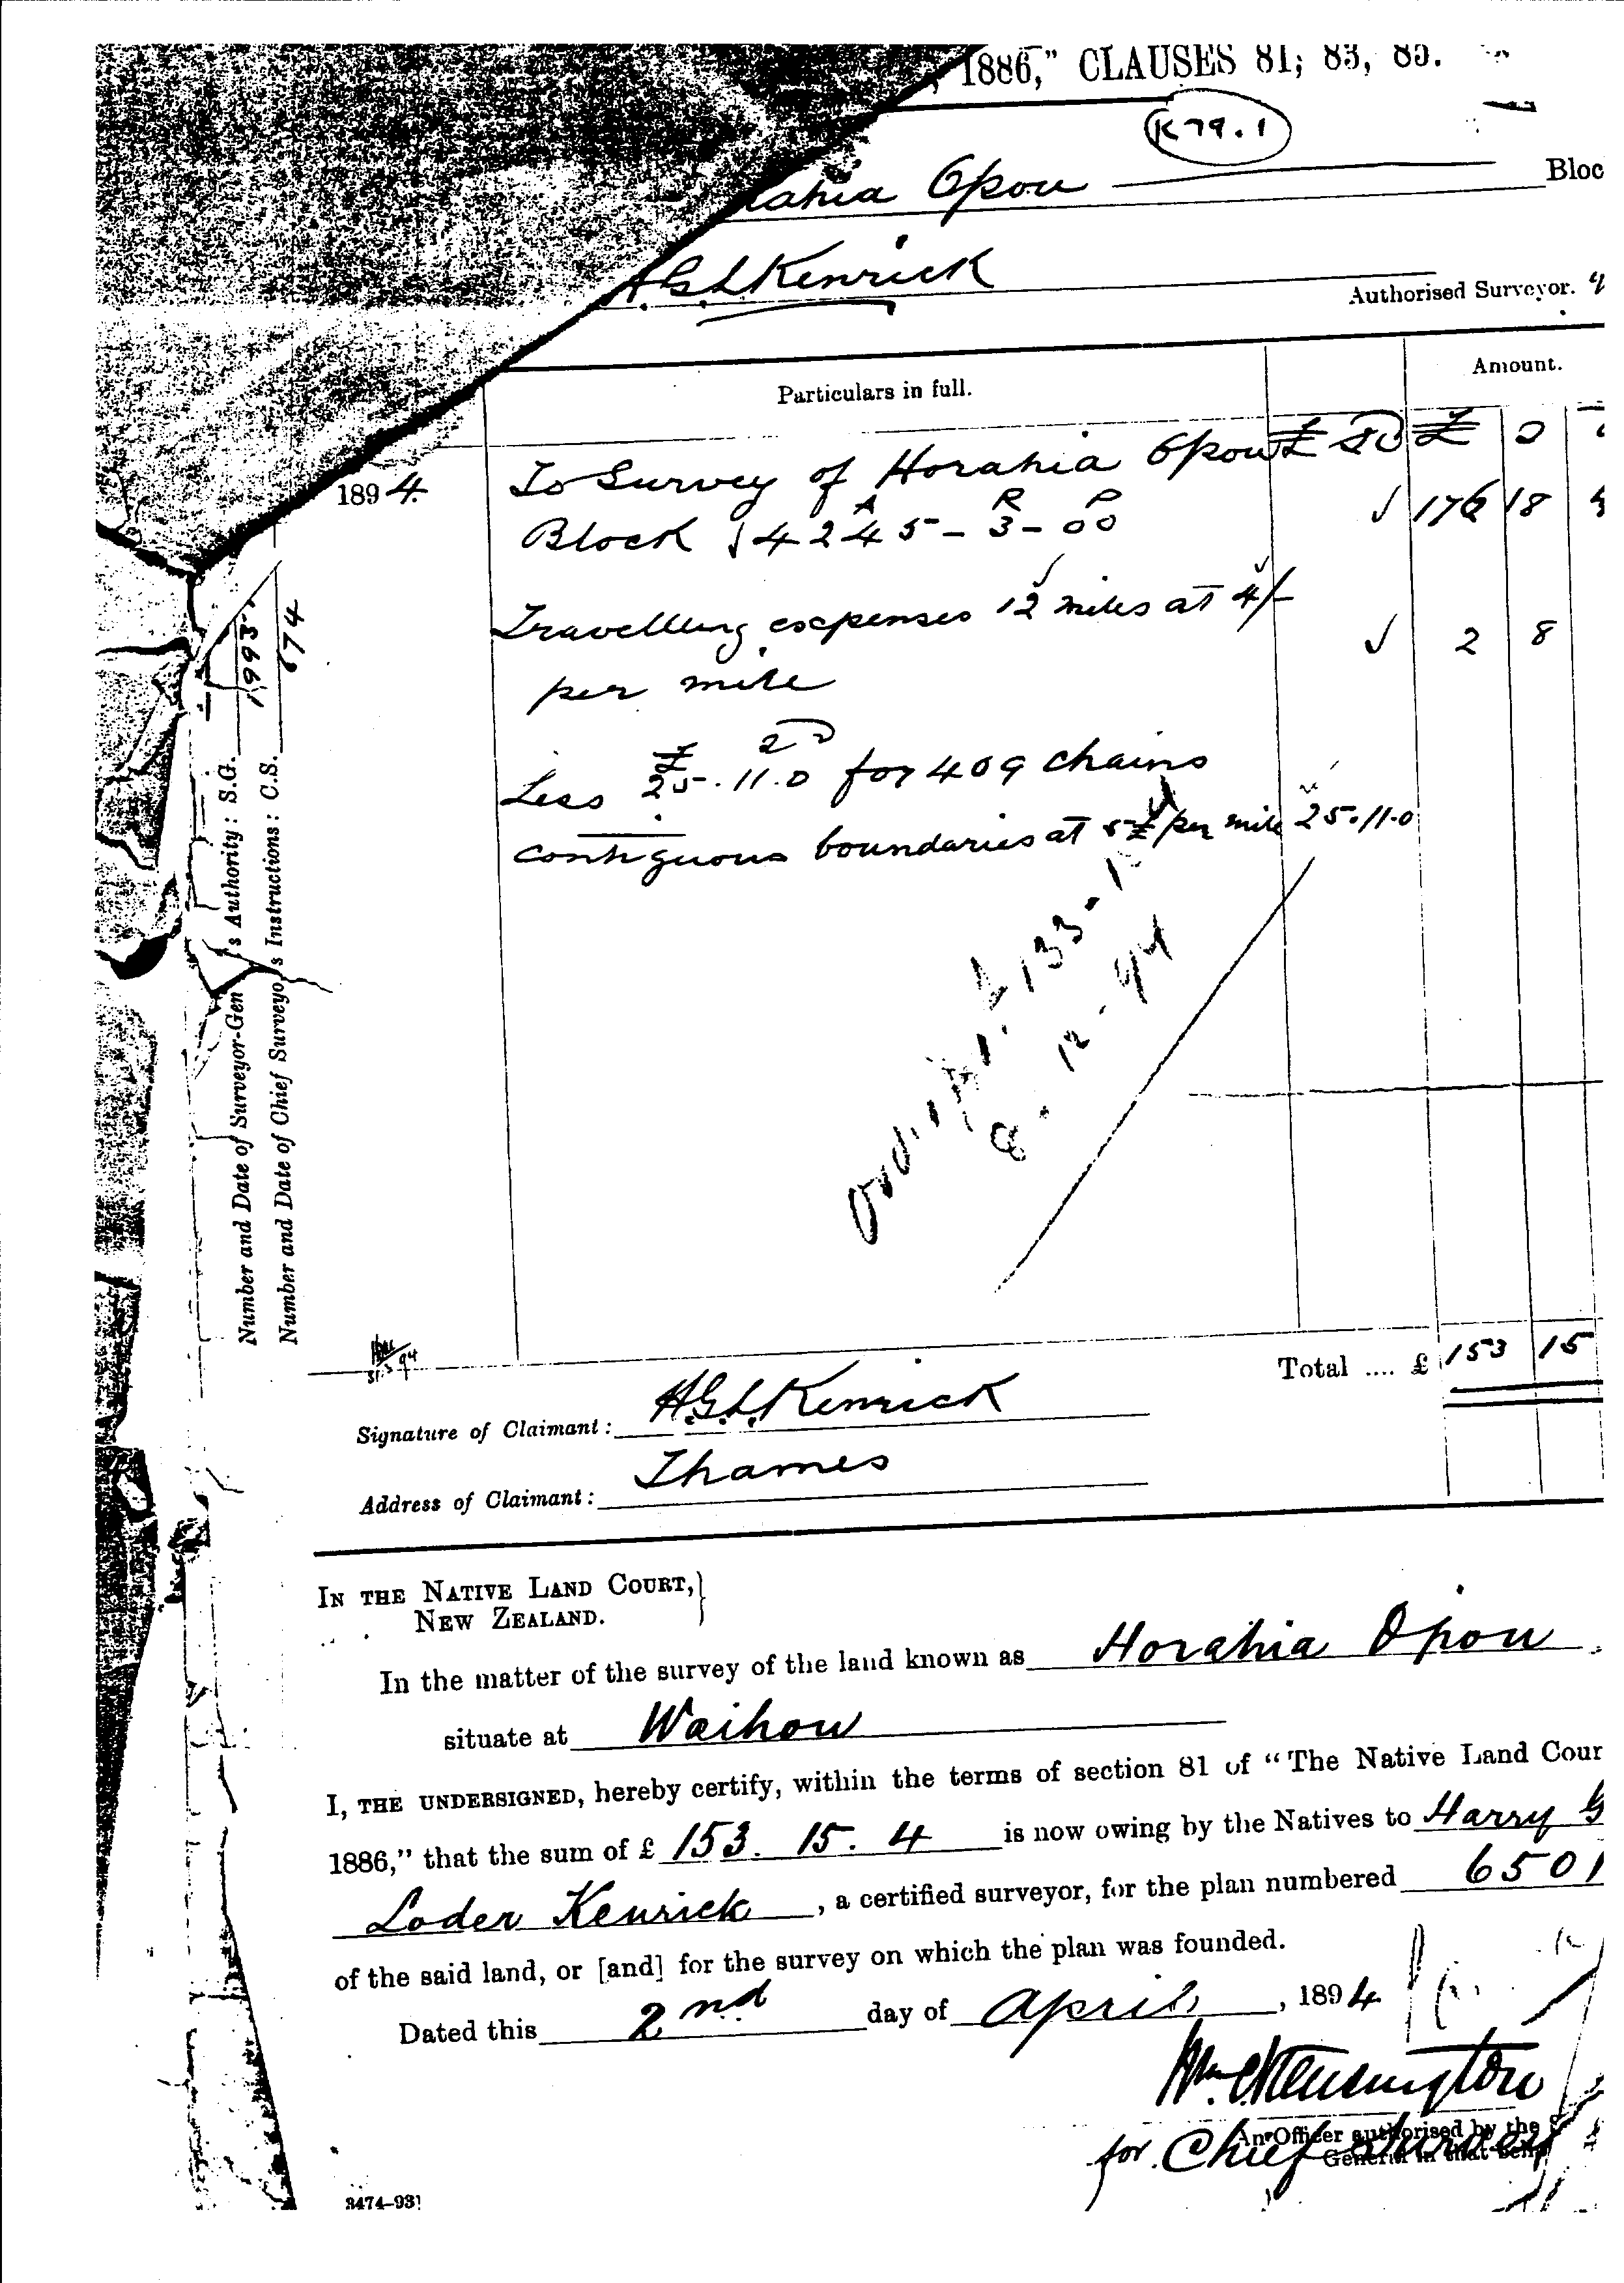 1886," CLAUSES 81, 83, 85.
K79.1
ahia Opou Bloc
H.G.L. Kenrick
Authorised Surveyor.
Particulars in full. Amount.
1894. To Survey of Horahia Opou £ s D £ s
Block 4245 - 3 - 00 176 18 4
A R P
Travelling expenses 12 miles at 4/-
per mile 2 8
Less £25.11.0 for 409 chains
contiguous boundaries at 5£/per mile 25.11.0
133-1
8.12.94
Number and Date of Surveyor-Gen s Authority: S.G. 1993
Number and Date of Chief Surveyo s Instructions: C.S. 674
31.3.94
Total .... £ 153 15
Signature of Claimant: H.G.L. Kenrick
Address of Claimant: Thames
IN THE NATIVE LAND COURT,
NEW ZEALAND.
In the matter of the survey of the land known as Horahia Opou
situate at Waihou
I, THE UNDERSIGNED, hereby certify, within the terms of section 81 of "The Native Land Cour
1886," that the sum of £ 153. 15. 4 is now owing by the Natives to Harry G
Loder Kenrick, a certified surveyor, for the plan numbered 6501
of the said land, or [and] for the survey on which the plan was founded.
Dated this 2nd day of April, 1894
Wm. C. Kensington
An Officer authorised by the S
for Chief Surveyor
General in that beha
3474-93